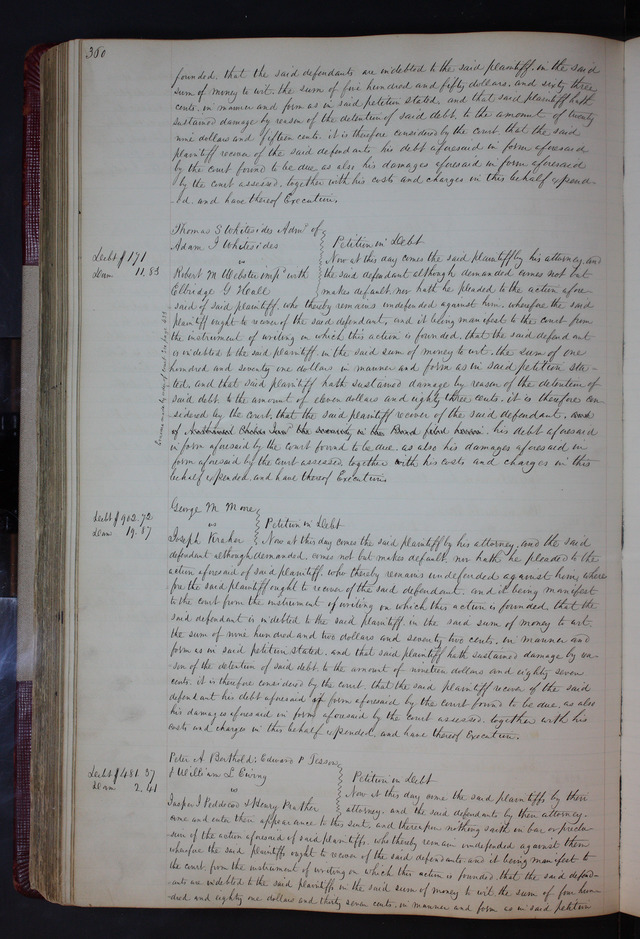 380
founded, that the said defendants are indebted to the said plaintiff in the said
sum of money to wit, the sum of five hundred and fifty dollars, and sixty three
cents, in manner and form as in said petition stated, and that said plaintiff hath
sustained damage by reason of the detention of said debt, to the amount of twenty
nine dollars and fifteen cents, it is therefore considered by the court, that the said
plaintiff recover of the said defendants his debt aforesaid in form aforesaid
by the court found to be due, as also his damages aforesaid in form aforesaid
by the court assessed, together with his costs and charges in this behalf expend-
ed, and have thereof Execution.
Thomas S Whitesides Admr of
Adam J Whitesides
vs
Robert M Webster impd with
Elbridge G Hall
Petition in Debt
Debt $171
Dam 11.83
Now at this day comes the said plaintiff by his attorney, and
the said defendant although demanded comes not but
makes default, nor hath he pleaded to the action afore-
said of said plaintiff, who thereby remains undefended against him, wherefore the said
plaintiff ought to recover of the said defendant, and it being manifest to the court from
the instrument of writing on which this action is founded, that the said defendant
is indebted to the said plaintiff in the said sum of money to wit, the sum of one
hundred and seventy one dollars in manner and form as in said petition sta-
ted, and that said plaintiff hath sustained damage by reason of the detention of
said debt, to the amount of eleven dollars and eighty three cents, it is therefore con-
sidered by the court, that the said plaintiff recover of the said defendant, and
of the security in the Bond filed herein, his debt aforesaid
in form aforesaid by the court found to be due, as also his damages aforesaid in
form aforesaid by the court assessed, together with his costs and charges in this
behalf expended, and have thereof Execution
George M Moore
vs
Joseph Kreher
Petition in Debt
Debt $902.72
Dam 19.87
Now at this day comes the said plaintiff by his attorney, and the said
defendant although demanded, comes not but makes default, nor hath he pleaded to the
action aforesaid of said plaintiff, who thereby remains undefended against him, where-
fore the said plaintiff ought to recover of the said defendant, and it being manifest
to the court from the instrument of writing on which this action is founded, that the
said defendant is indebted to the said plaintiff, in the said sum of money to wit
the sum of nine hundred and two dollars and seventy two cents, in manner and
form as in said petition stated, and that said plaintiff hath sustained damage by rea-
son of the detention of said debt, to the amount of nineteen dollars and eighty seven
cents, it is therefore considered by the court, that the said plaintiff recover of the said
defendant his debt aforesaid if form aforesaid by the court found to be due, as also
his damages aforesaid in form aforesaid by the court assessed, together with his
costs and charges in this behalf expended, and have thereof Execution.
Peter A Berthold, Edward P Tesson
& William L Ewing
vs
Jasper J Peddecord & Henry Prather
Petition in Debt
Debt $481.37
Dam 2.41
Now at this day come the said plaintiffs by their
attorney, and the said defendants by their attorney,
come and enter their appearance to this suit, and thereupon nothing saith in bar or preclu-
sion of the action aforesaid of said plaintiffs, who thereby remain undefended against them
wherefore the said plaintiffs ought to recover of the said defendants, and it being manifest to
the court, from the instrument of writing on which this action is founded, that the said defend-
ants are indebted to the said plaintiffs in the said sum of money to wit the sum of four hun-
dred and eighty one dollars and thirty seven cents, in manner and form as in said petition